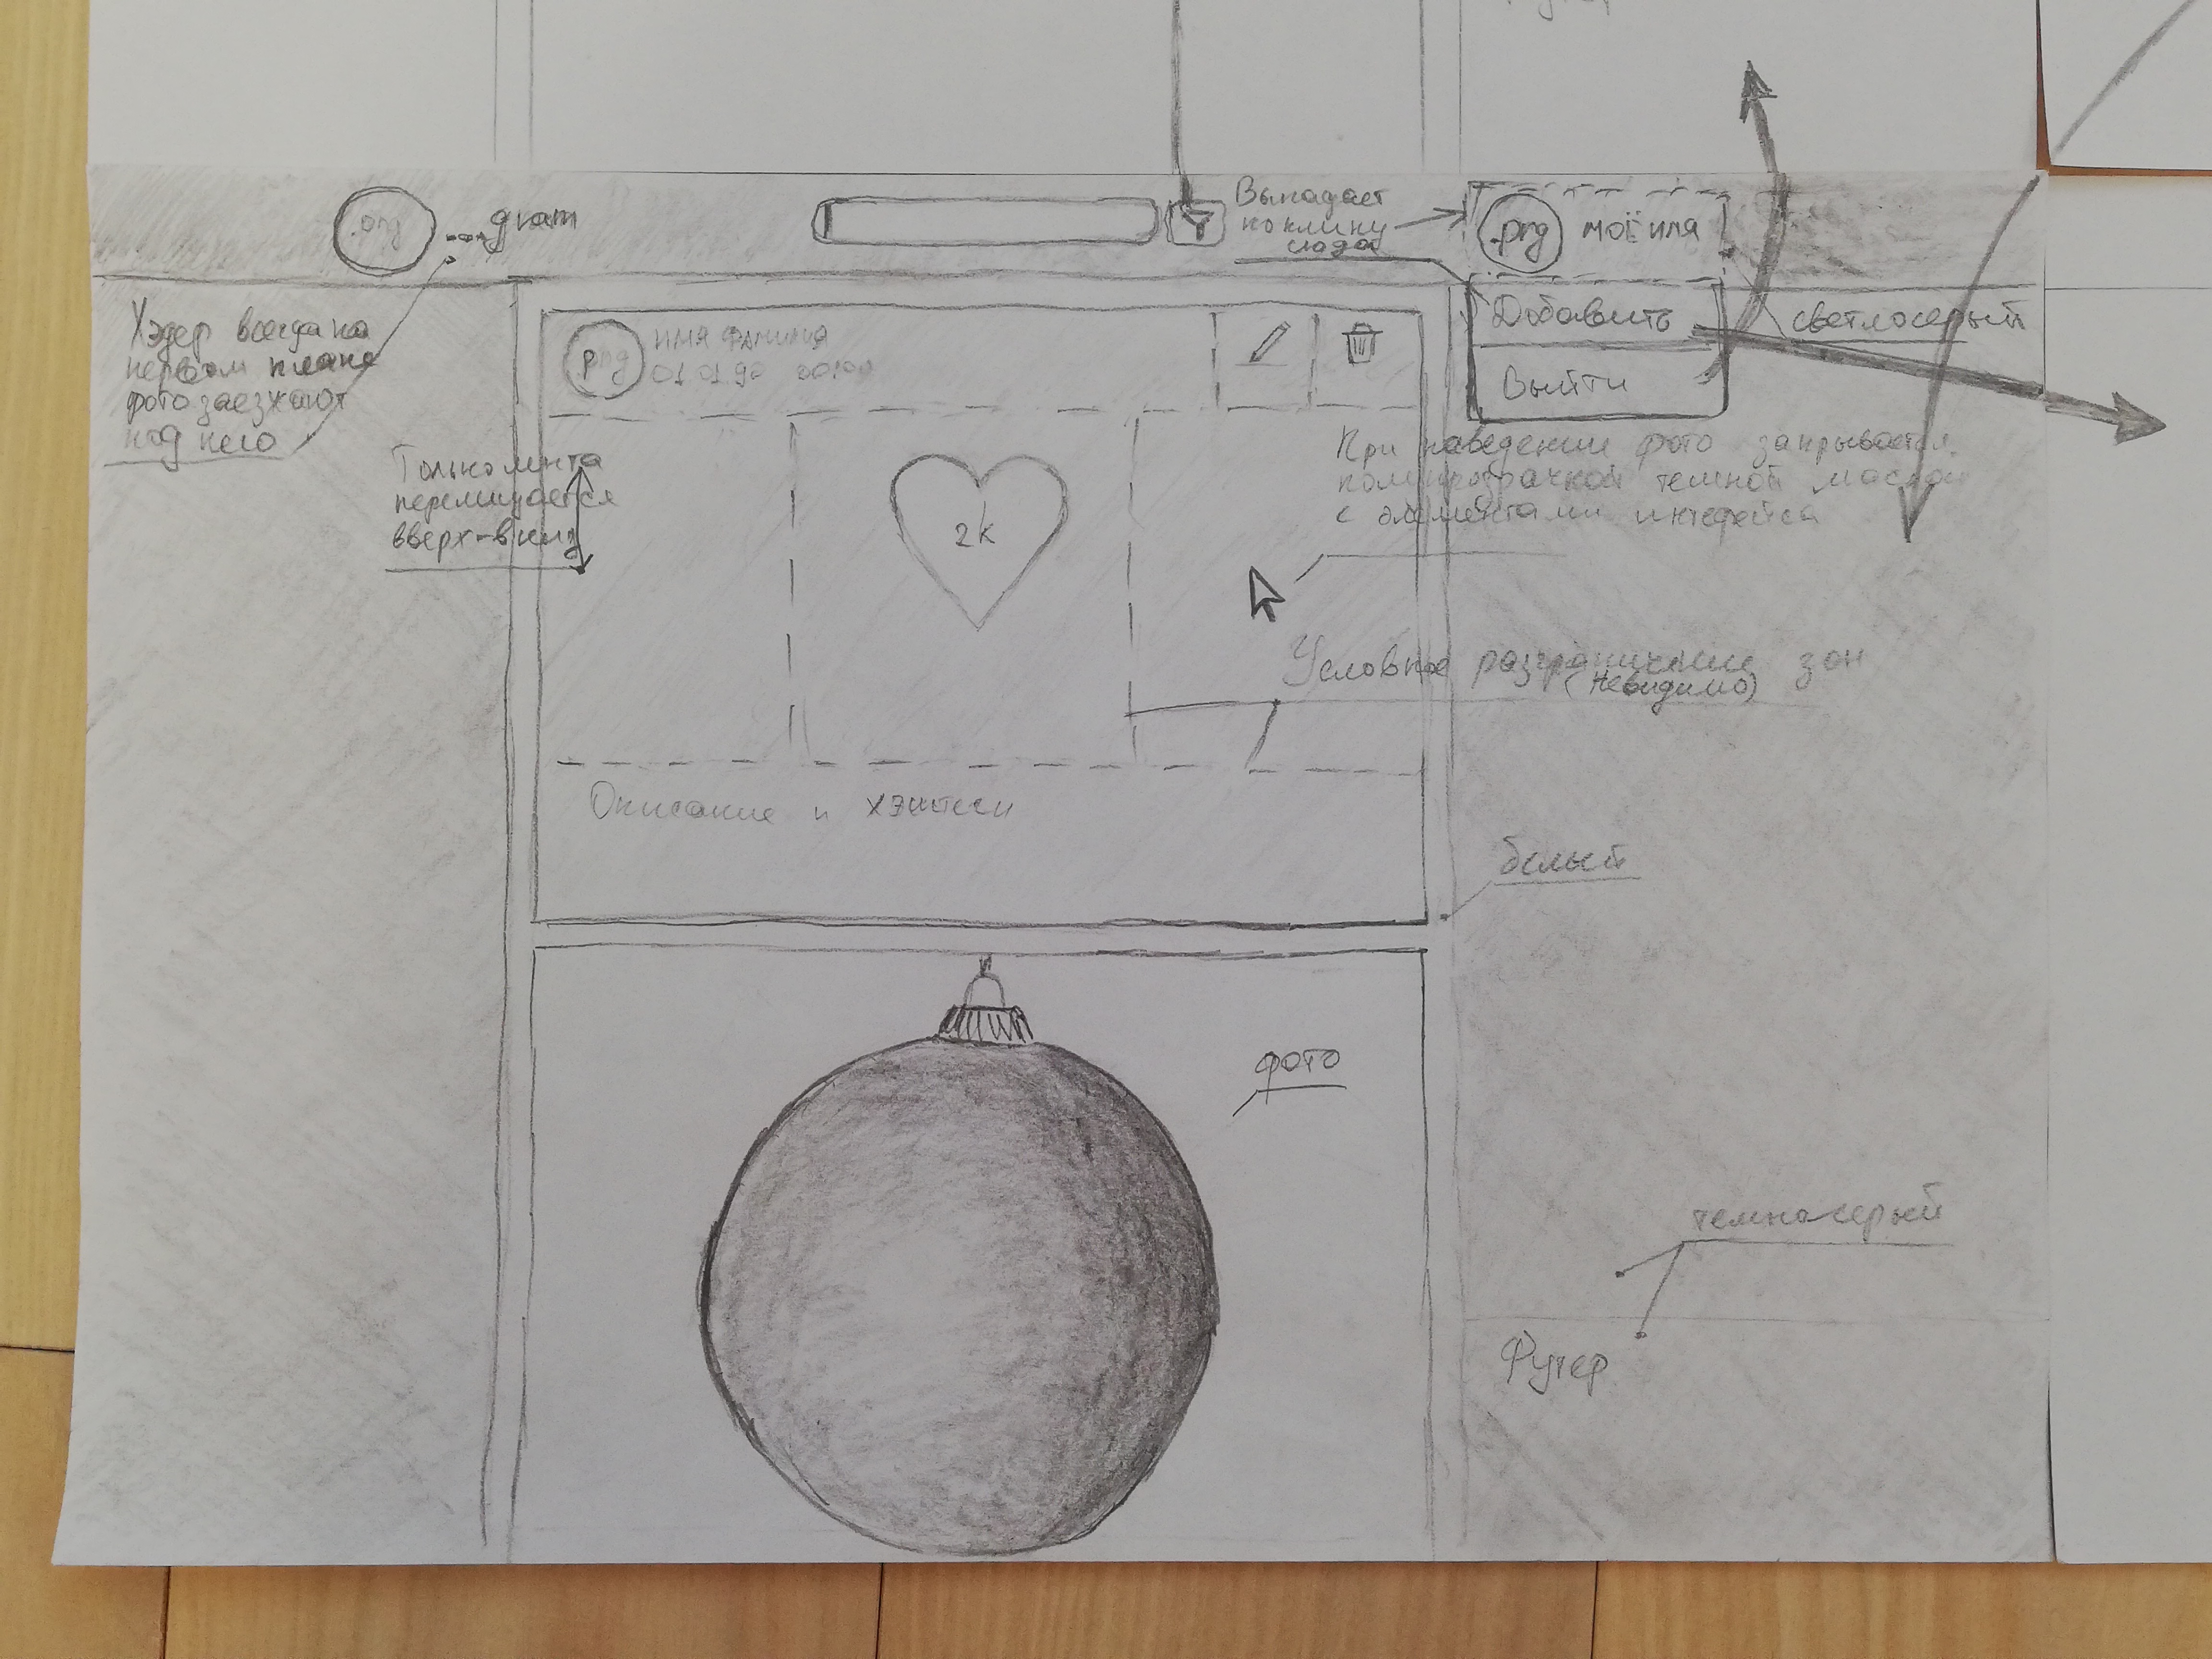 .prg
---gram
Выпадает
по клику
сюда
.prg
моё имя
Добавить
Выйти
светлосерый
Хэдер всегда на
первом плане
фото заезжают
под него
prg
имя фамилия
01.01.90 00:00
Только лента
перемещается
вверх-вниз
2k
При наведении фото закрывается
полупрозрачной темной маской
с элементами интефейса
Условное разграничение зон
(Невидимо)
Описание и хэштеги
белый
фото
темносерый
Футер